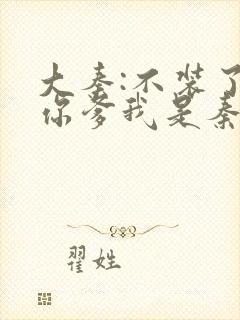 大秦:不装了
你爹我是秦
翟姓